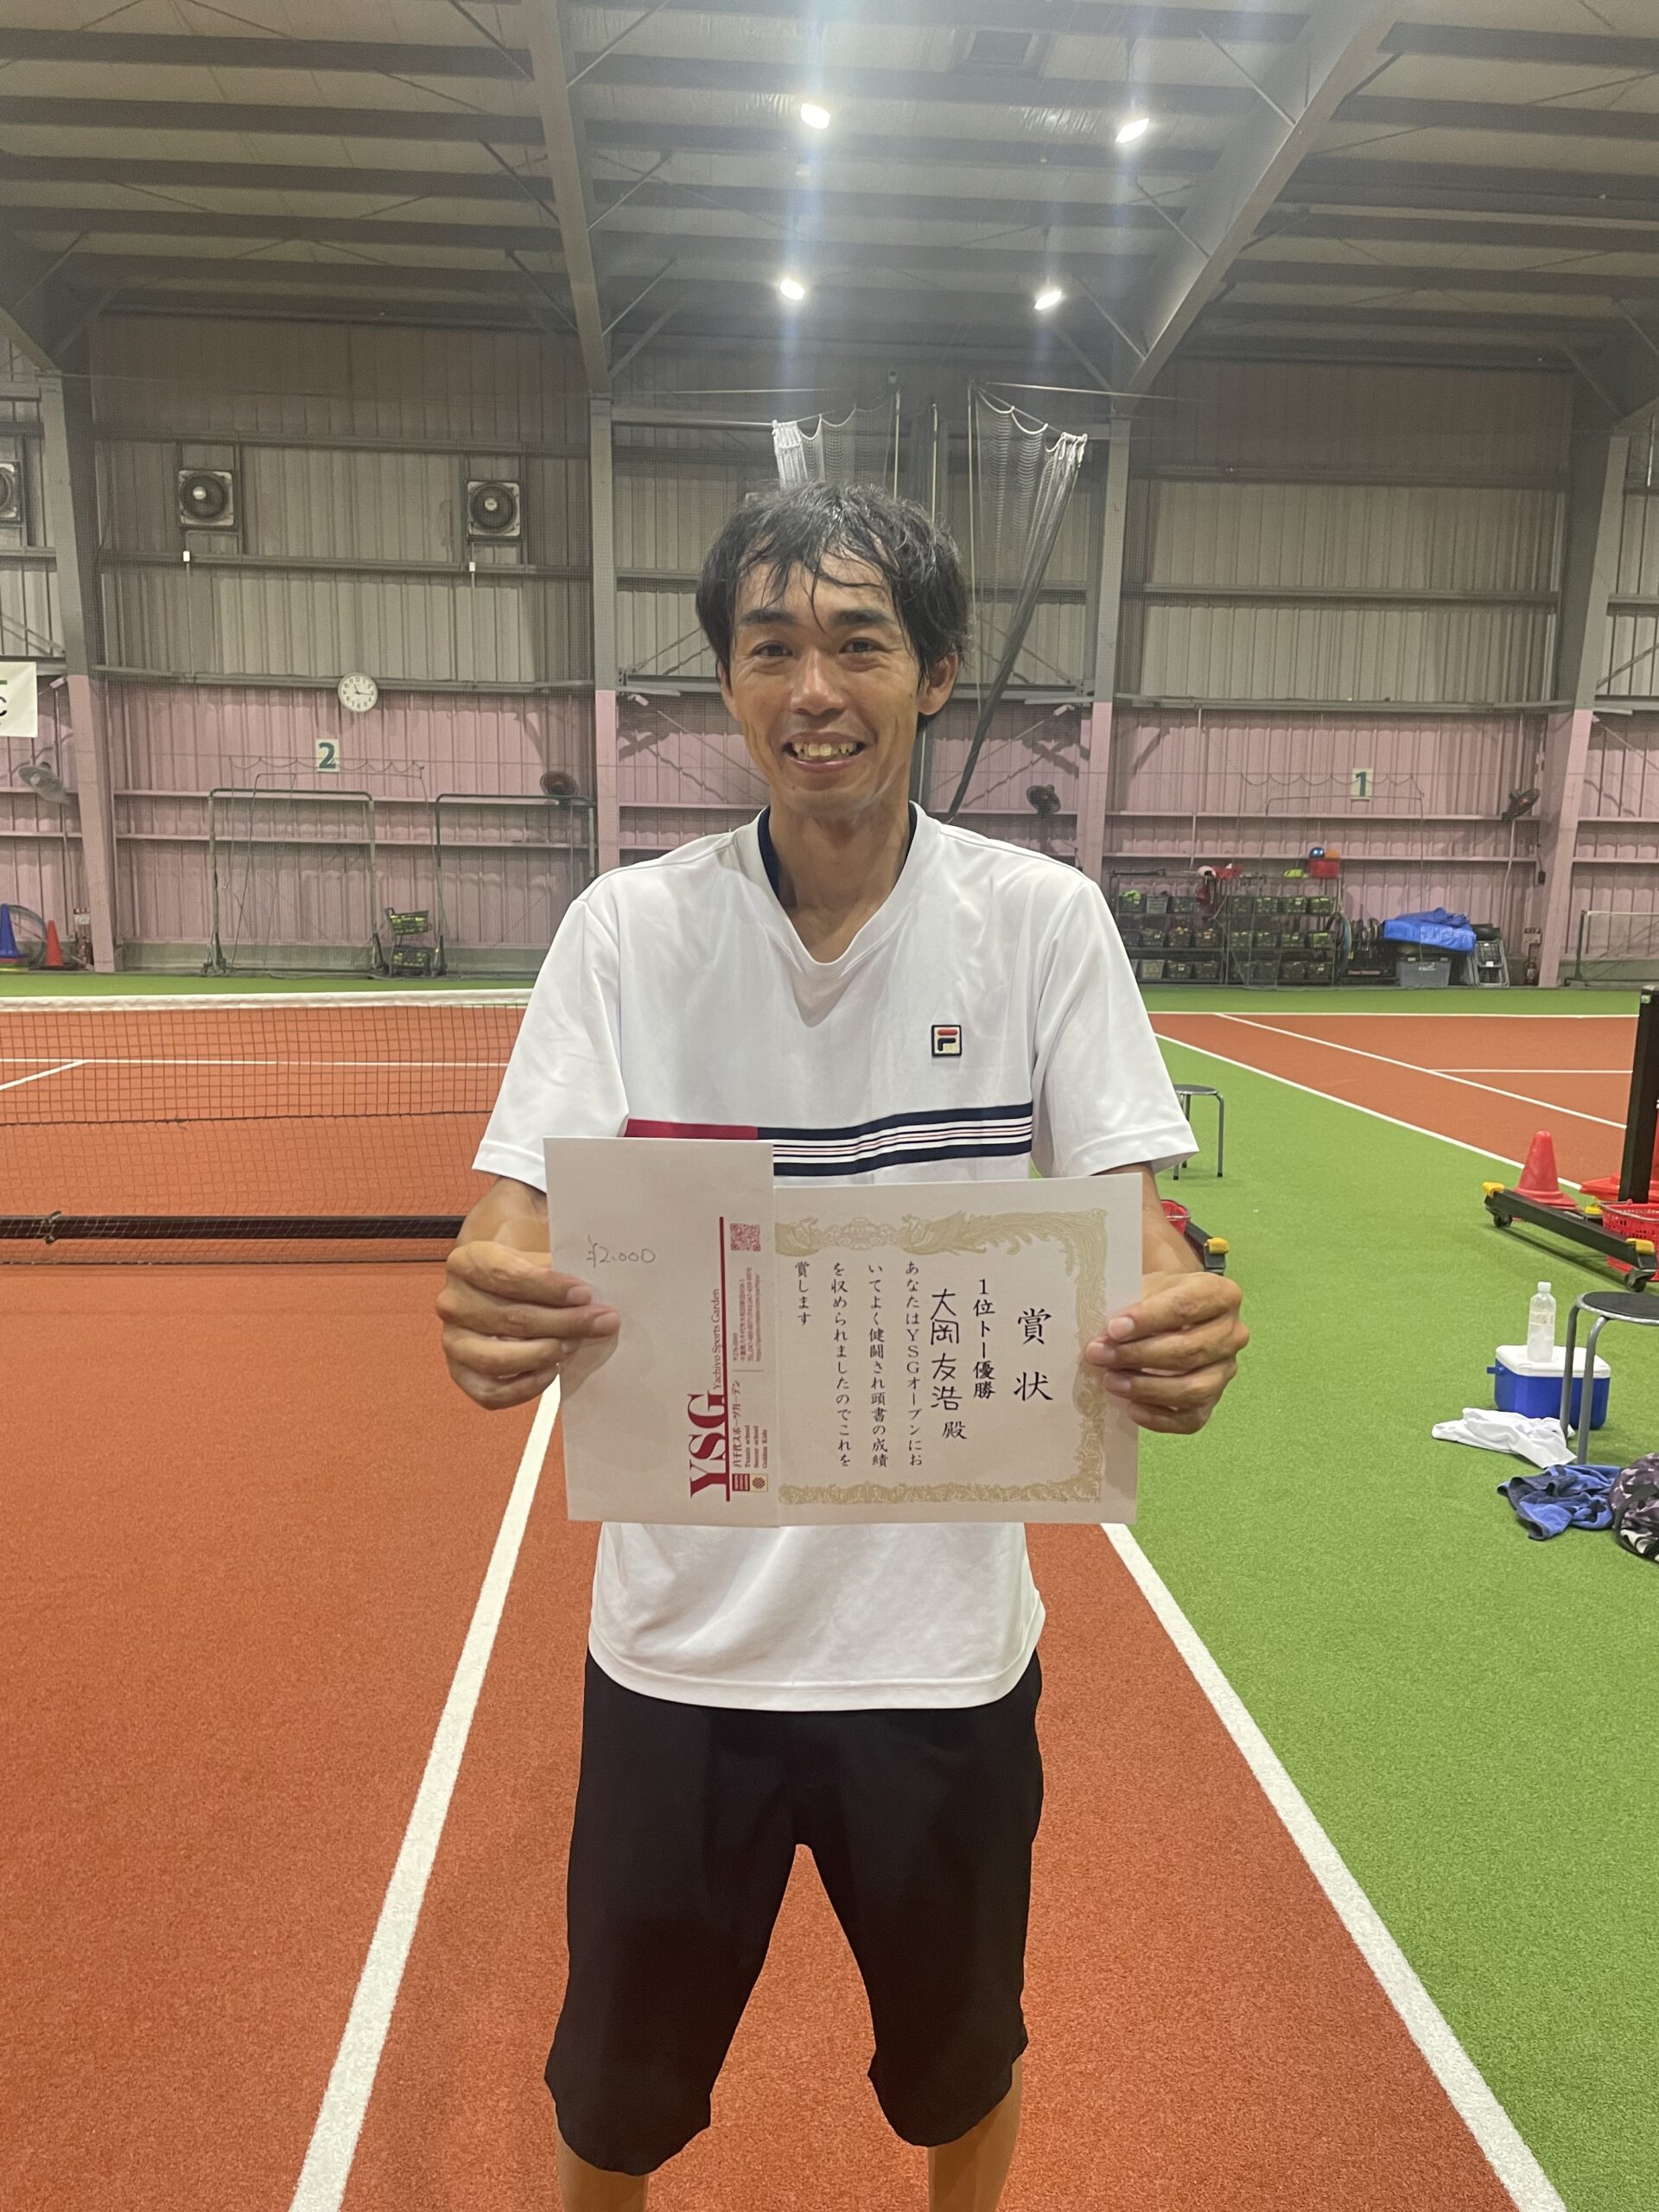 賞状
1位トー優勝
大岡友浩 殿
あなたはYSGオープンにお
いてよく健闘され頭書の成績
を収められましたのでこれを
賞します
¥2.000
YSG Yachiyo Sports Garden
八千代スポーツガーデン
Tennis school
Soccer school
2
1
C
F